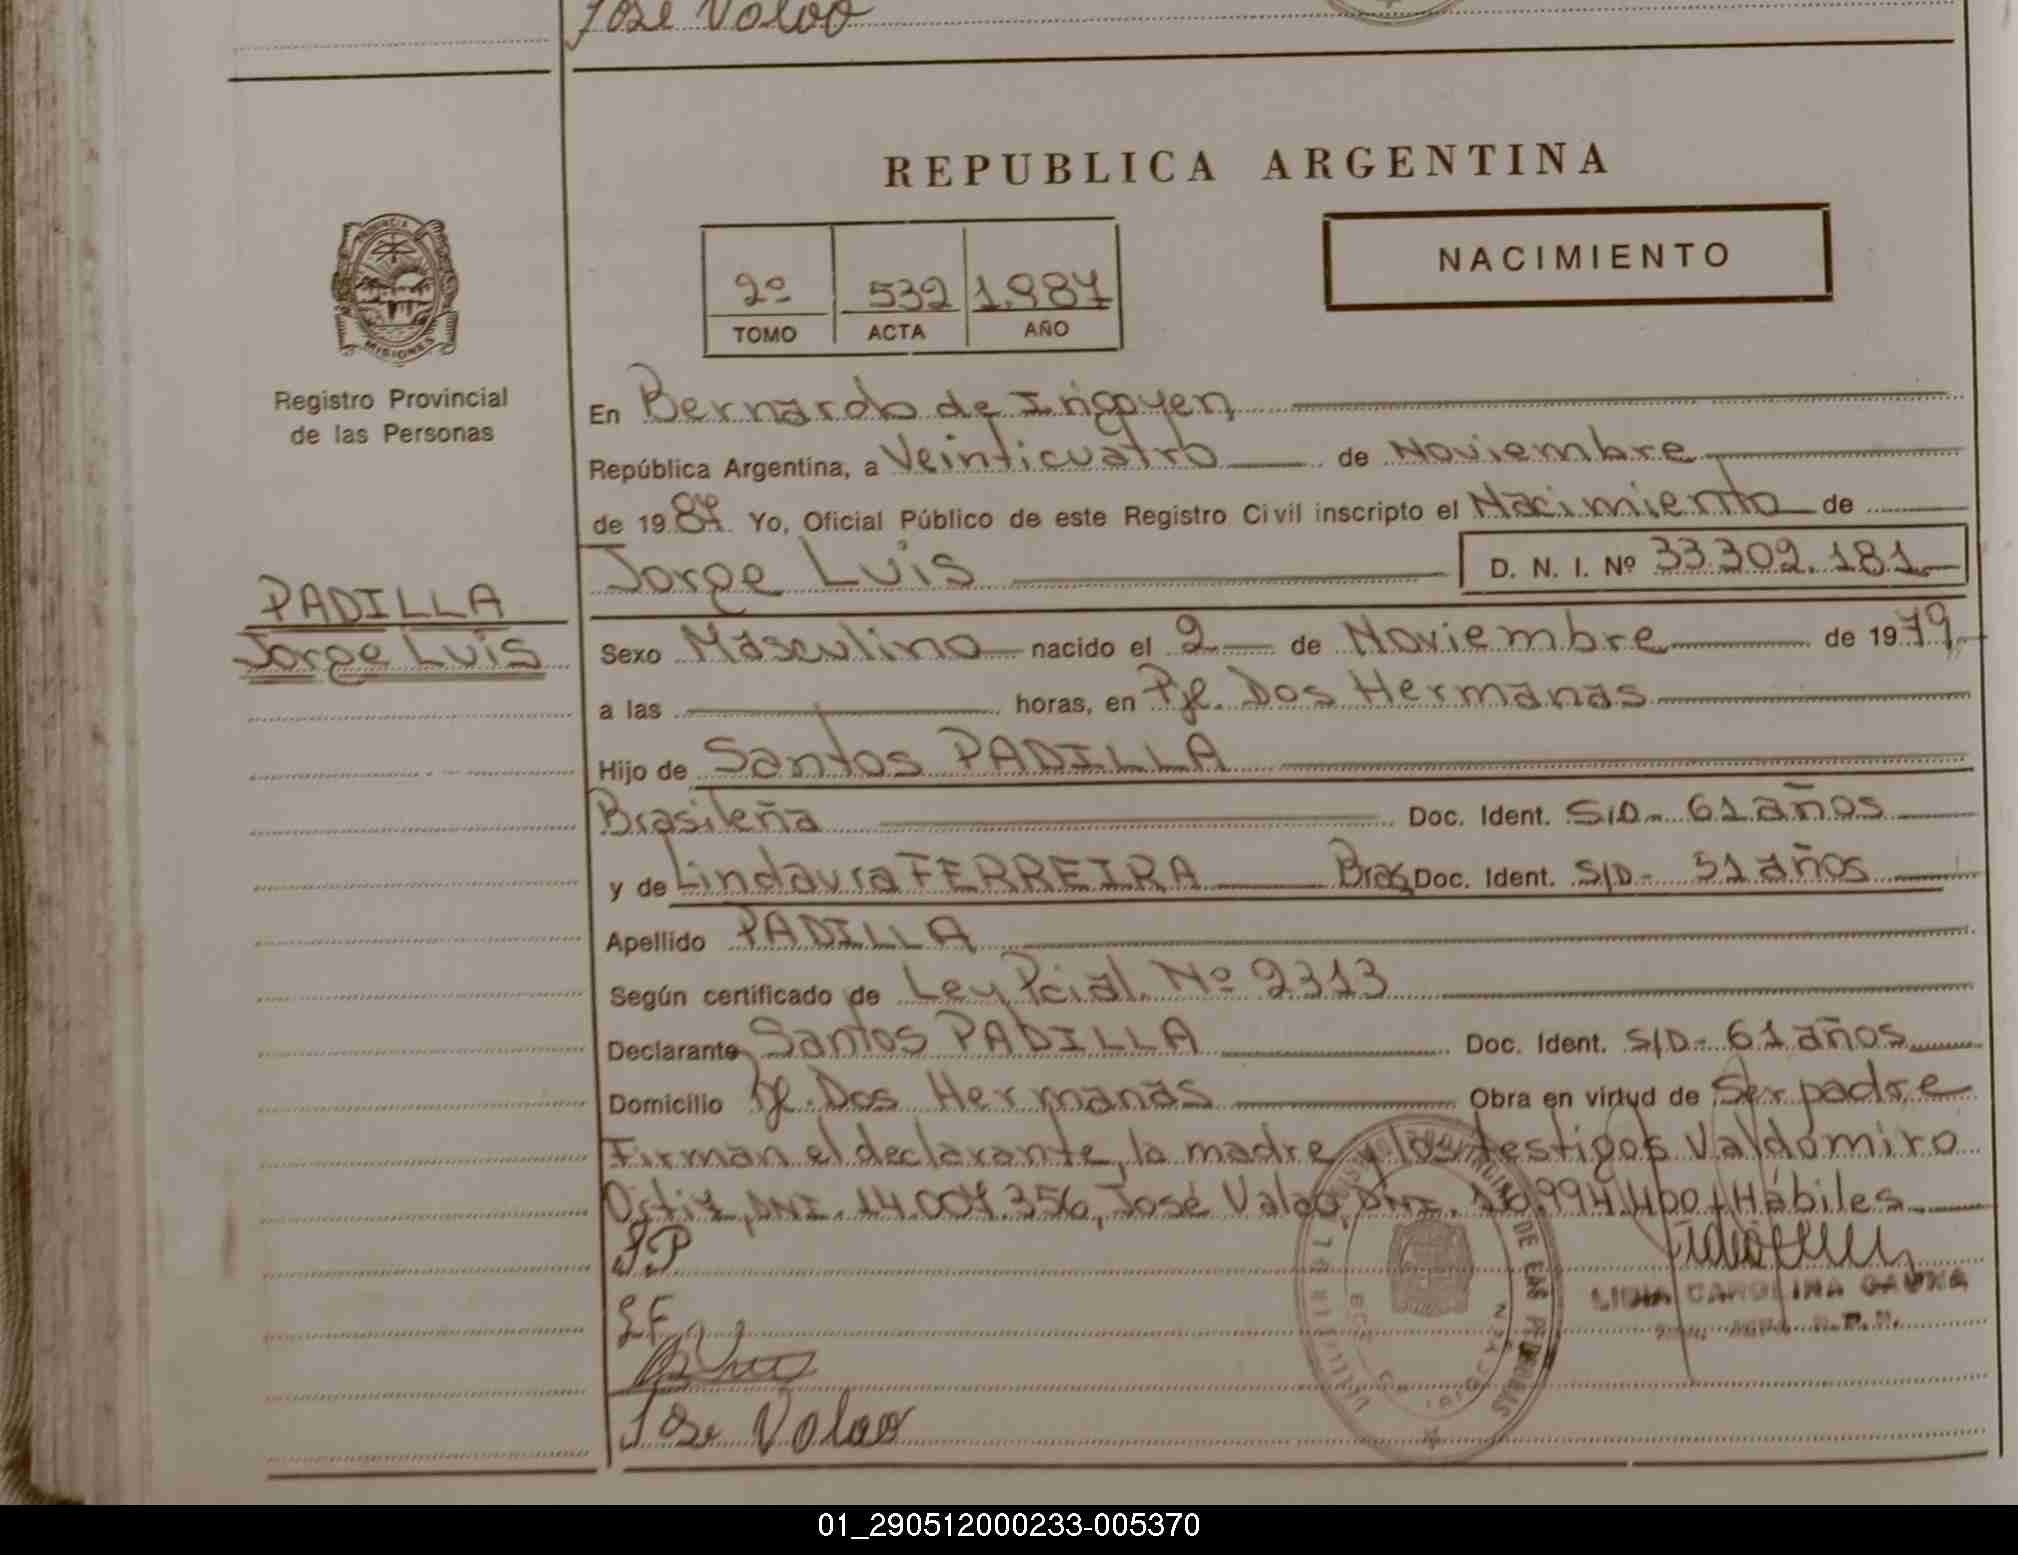 José Valao
REPUBLICA ARGENTINA
PROVINCIA
MISIONES
2º 532 1.987
TOMO ACTA AÑO
NACIMIENTO
Registro Provincial
de las Personas
En Bernardo de Irigoyen
República Argentina, a Veinticuatro de Noviembre
de 1987 Yo, Oficial Público de este Registro Civil inscripto el Nacimiento de
Jorge Luis D. N. I. Nº 33.309.181
PADILLA
Jorge Luis
Sexo Masculino nacido el 2 de Noviembre de 1979
a las horas, en Pje. Dos Hermanas
Hijo de Santos PADILLA
Brasileña Doc. Ident. S/D- 61 años
y de Lindaura FERREIRA Bras. Doc. Ident. S/D- 51 años
Apellido PADILLA
Según certificado de Ley Pcial. Nº 2313
Declarante Santos PADILLA Doc. Ident. S/D- 61 años
Domicilio Pje. Dos Hermanas Obra en virtud de Ser padre
Firman el declarante, la madre y los testigos Valdomiro
Ortiz, DNI. 14.007.356, José Valao, DNI. 10.994.400, Hábiles
S.P
L F
José Valao
DE LAS PERSONAS
LIDIA CAROLINA GAUNA
01_290512000233-005370